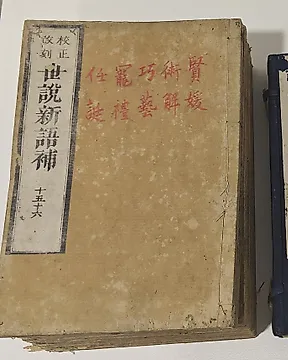 校正
改刻
世說新語補
十五十六
賢媛
術解
巧藝
寵禮
任誕